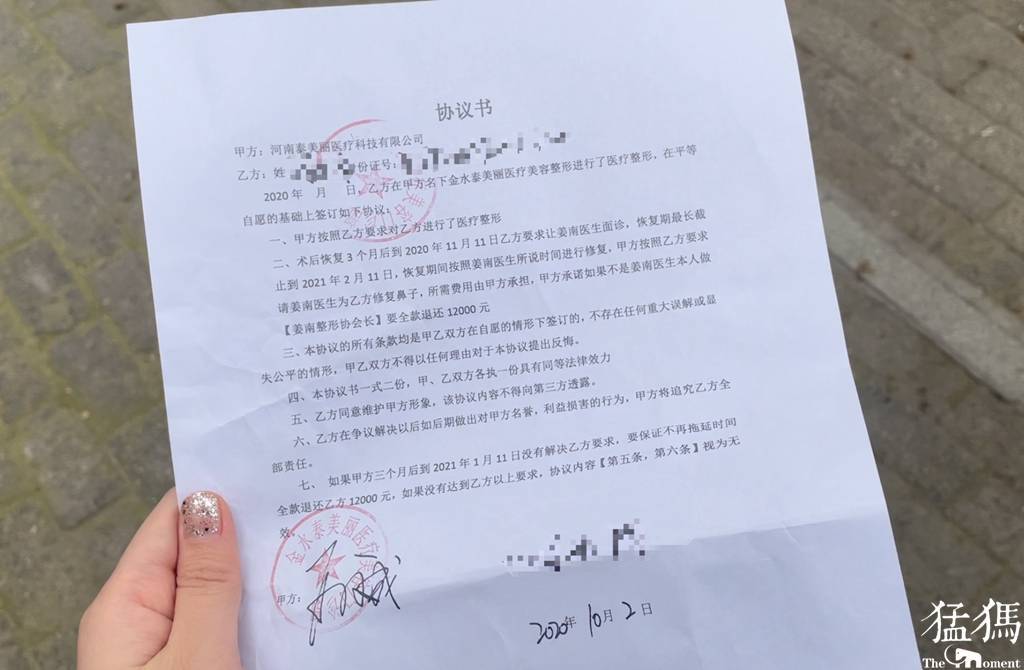 协议书
甲方：河南泰美丽医疗科技有限公司
乙方：姓 份证号：
2020年 月 日，乙方在甲方名下金水泰美丽医疗美容整形进行了医疗整形，在平等
自愿的基础上签订如下协议：
一、甲方按照乙方要求对乙方进行了医疗整形
二、术后恢复3个月后到2020年11月11日乙方要求让姜南医生面诊，恢复期最长截
止到2021年2月11日，恢复期间按照姜南医生所说时间进行修复，甲方按照乙方要求
请姜南医生为乙方修复鼻子，所需费用由甲方承担，甲方承诺如果不是姜南医生本人做
【姜南整形协会长】要全款退还12000元
三、本协议的所有条款均是甲乙双方在自愿的情形下签订的，不存在任何重大误解或显
失公平的情形，甲乙双方不得以任何理由对于本协议提出反悔。
四、本协议书一式二份，甲、乙双方各执一份具有同等法律效力
五、乙方同意维护甲方形象，该协议内容不得向第三方透露。
六、乙方在争议解决以后如后期做出对甲方名誉，利益损害的行为，甲方将追究乙方全
部责任。
七、如果甲方三个月后到2021年1月11日没有解决乙方要求，要保证不再拖延时间
全款退还乙方12000元，如果没有达到乙方以上要求，协议内容【第五条，第六条】视为无
效。
金水泰美丽医疗美
甲方：
2020年10月2日
猛犸
The Moment